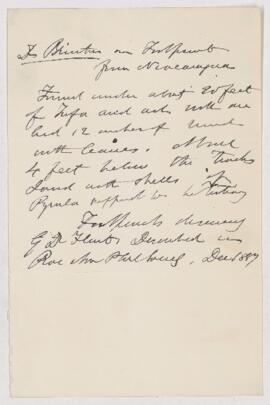 Dr Brinton on Footprints
from Nicaragua
Found under about 20 feet
of Tufa and
bed 12 inches of
with leaves. About
4 feet below the Tracks
Sand with shells of
Pyrula supposed to be Tertiary
Footprints discovery
of Dr Flint Described in
Proc Am Phil Society, Dec 1887